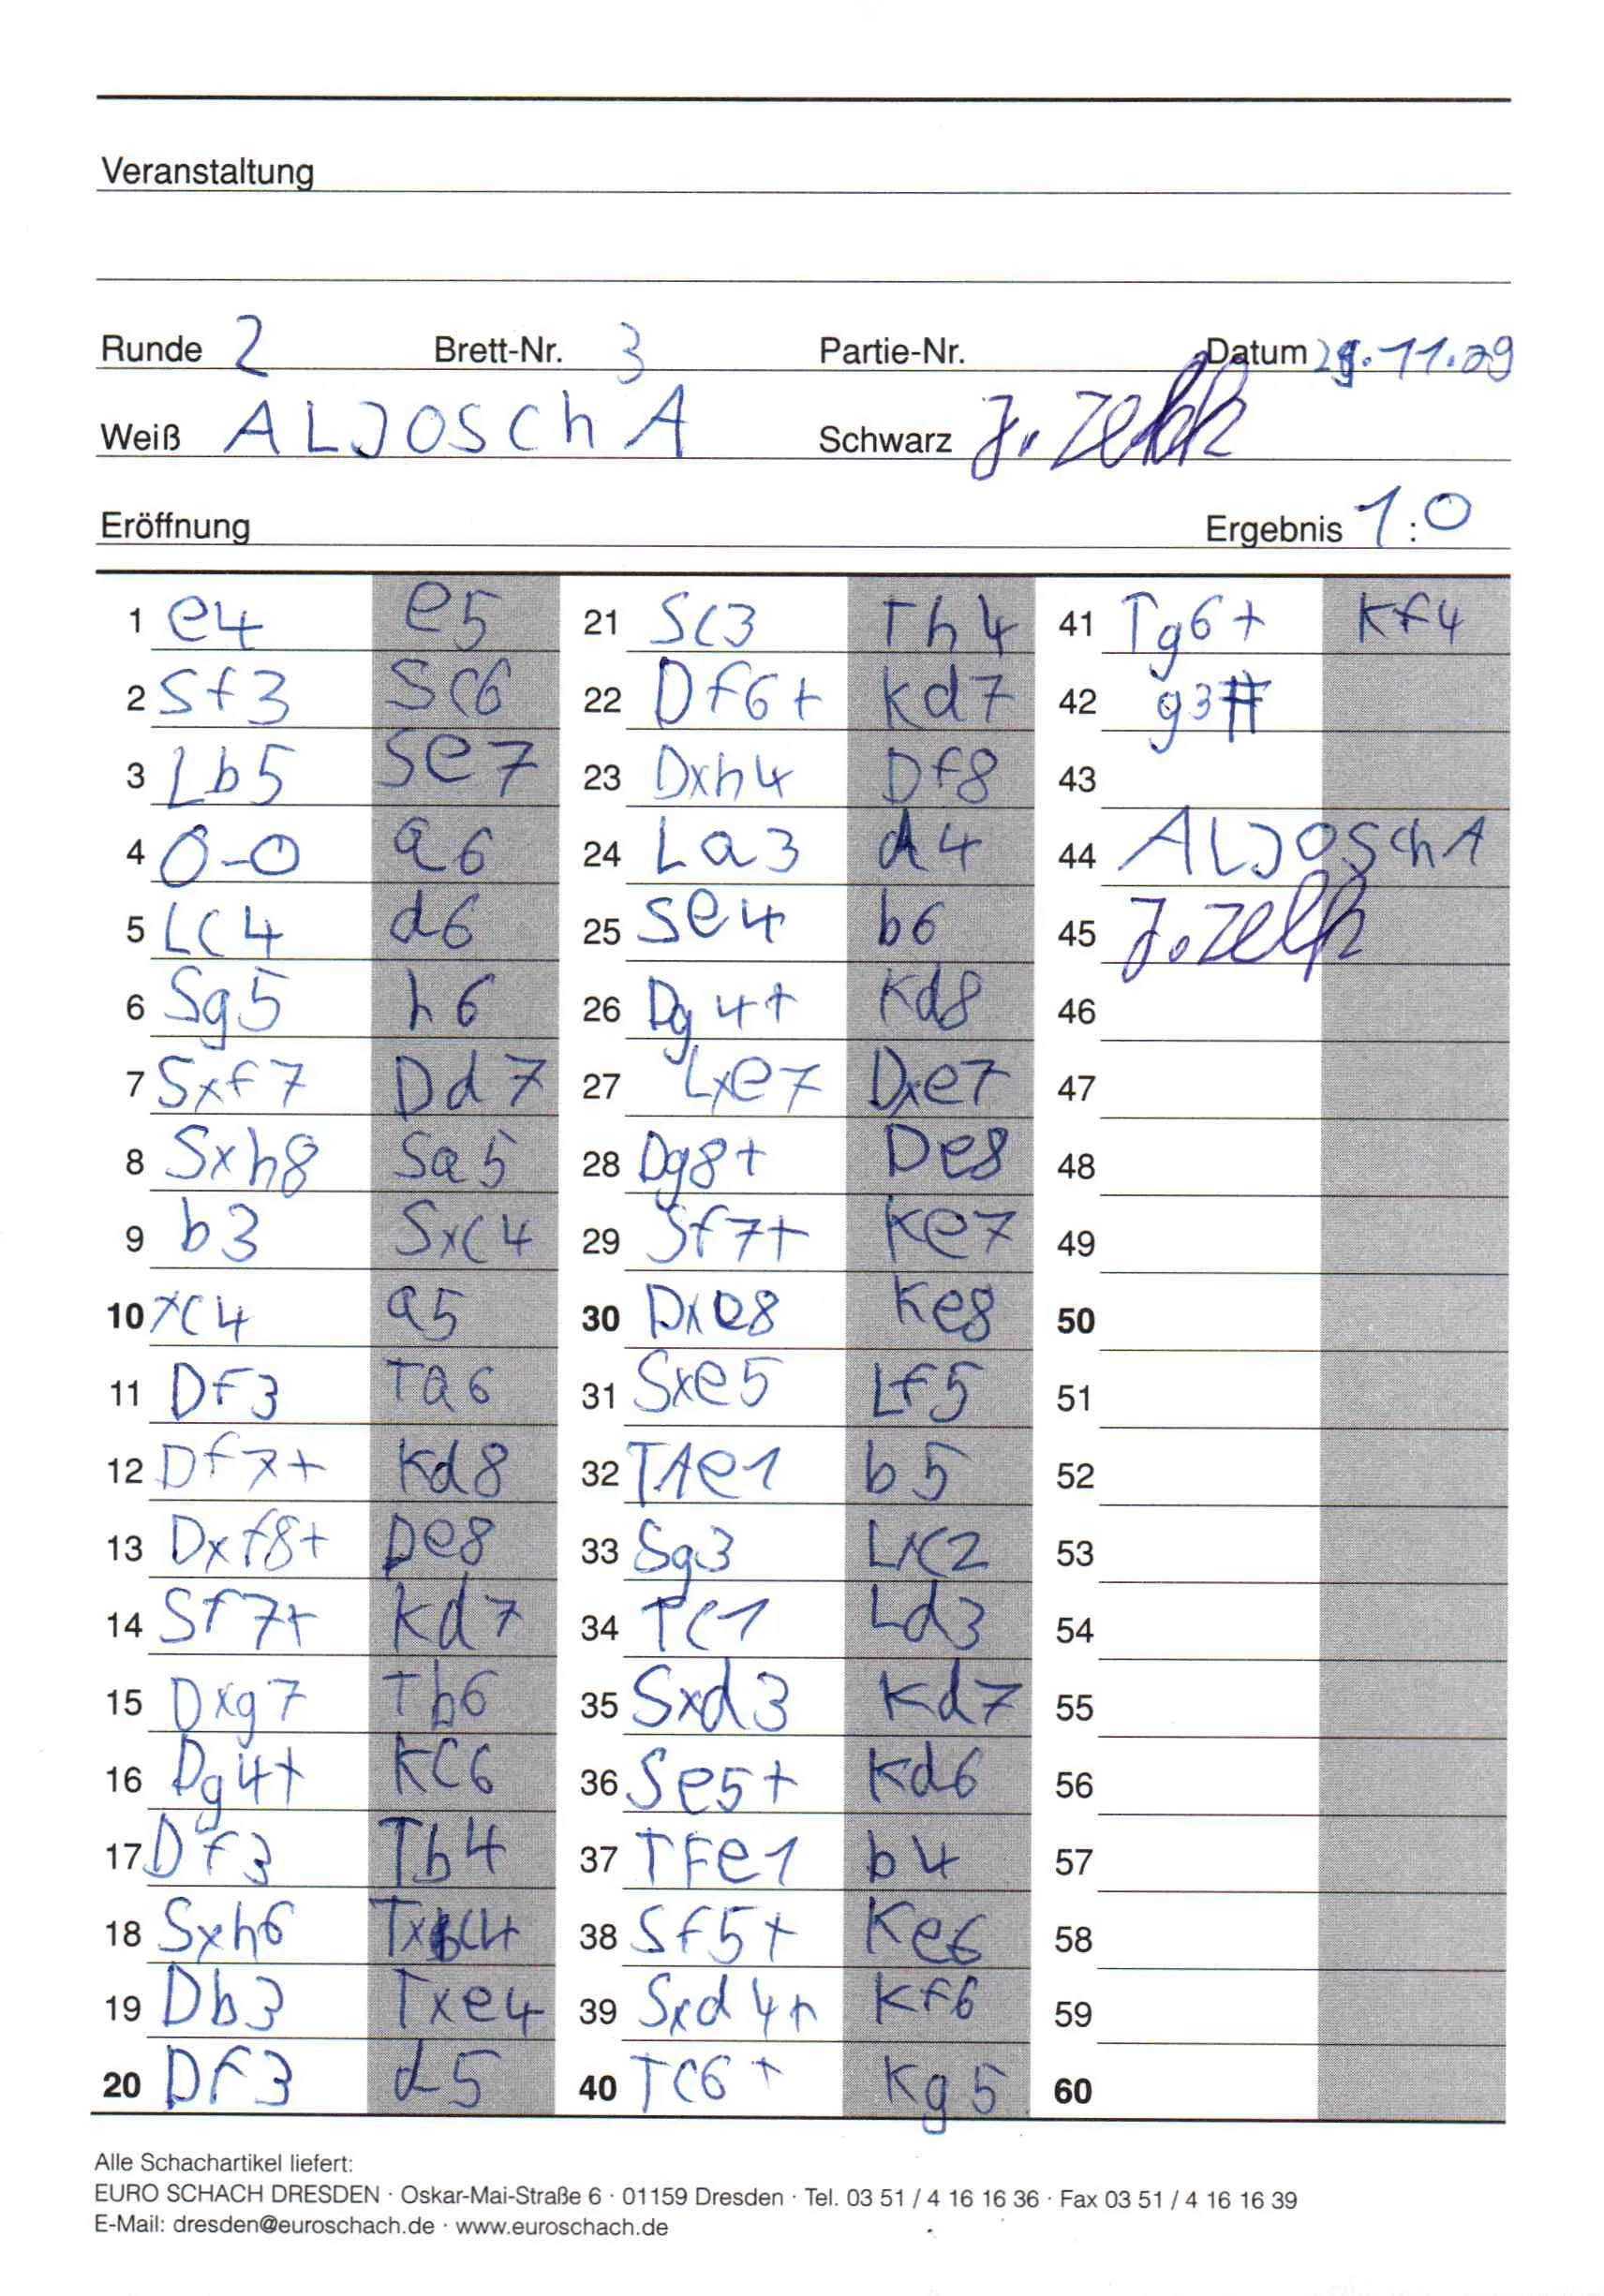 Veranstaltung
Runde 2 Brett-Nr. 3 Partie-Nr. Datum .11.09
Weiß ALJOSChA Schwarz J. Zelk
Eröffnung Ergebnis 1:0
1 e4 e5 21 Sc3 Th4 41 Tg6+ Kf4
2 Sf3 Sc6 22 Df6+ Kd7 42 g3#
3 Lb5 Se7 23 Dxh4 Df8 43
4 0-0 a6 24 La3 d4 44 ALJOSchA
5 Lc4 d6 25 Se4 b6 45 J. Zelk
6 Sg5 h6 26 Dg4+ Kd8 46
7 Sxf7 Dd7 27 Lxe7 Dxe7 47
8 Sxh8 Sa5 28 Dg8+ De8 48
9 b3 Sxc4 29 Sf7+ Ke7 49
10 xc4 a5 30 Dxe8 Ke8 50
11 Df3 Ta6 31 Sxe5 Lf5 51
12 Df7+ Kd8 32 TAe1 b5 52
13 Dxf8+ De8 33 Sg3 Lxc2 53
14 Sf7+ Kd7 34 Tc1 Ld3 54
15 Dxg7 Tb6 35 Sxd3 Kd7 55
16 Dg4+ Kc6 36 Se5+ Kd6 56
17 Df3 Tb4 37 TFe1 b4 57
18 Sxh6 Txc4 38 Sf5+ Ke6 58
19 Db3 Txe4 39 Sxd4+ Kf6 59
20 Df3 d5 40 Tc6+ Kg5 60
Alle Schachartikel liefert:
EURO SCHACH DRESDEN · Oskar-Mai-Straße 6 · 01159 Dresden · Tel. 03 51 / 4 16 16 36 · Fax 03 51 / 4 16 16 39
E-Mail: dresden@euroschach.de · www.euroschach.de